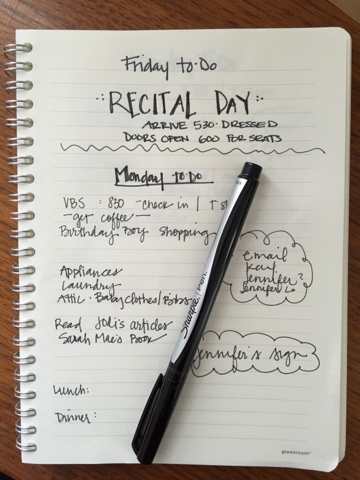 Friday to·Do
RECITAL DAY
ARRIVE 530·DRESSED
DOORS OPEN 600 FOR SEATS
Monday to·Do
VBS : 830 - check in / T
- get coffee -
Birthday Boy Shopping
email
Kari
Jennifer?
Jennifer
Appliances
Laundry
Attic · Baby Clothes/
Read Jodi's articles
Sarah Mae's Book
Jennifer's sign
Lunch:
Dinner:
Sharpie. Pen.
greenroom